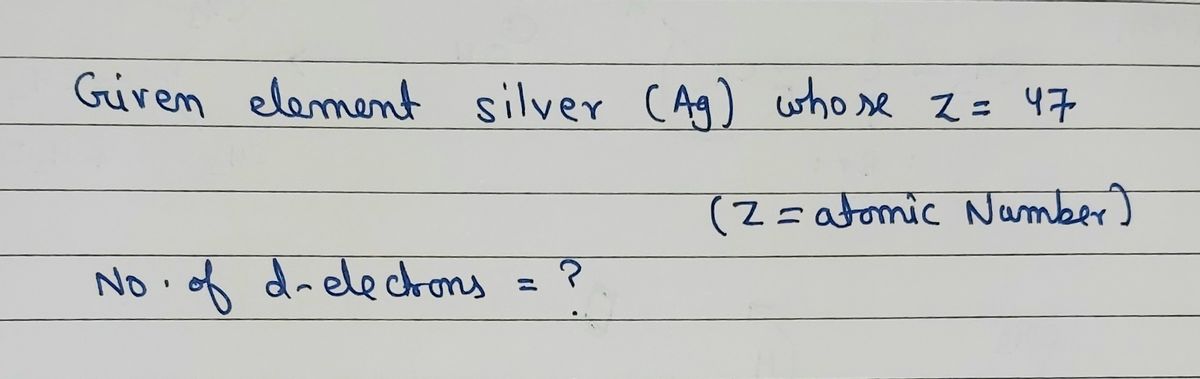 Given element silver (Ag) whose Z = 47
(Z = atomic Number)
No. of d-electrons = ?